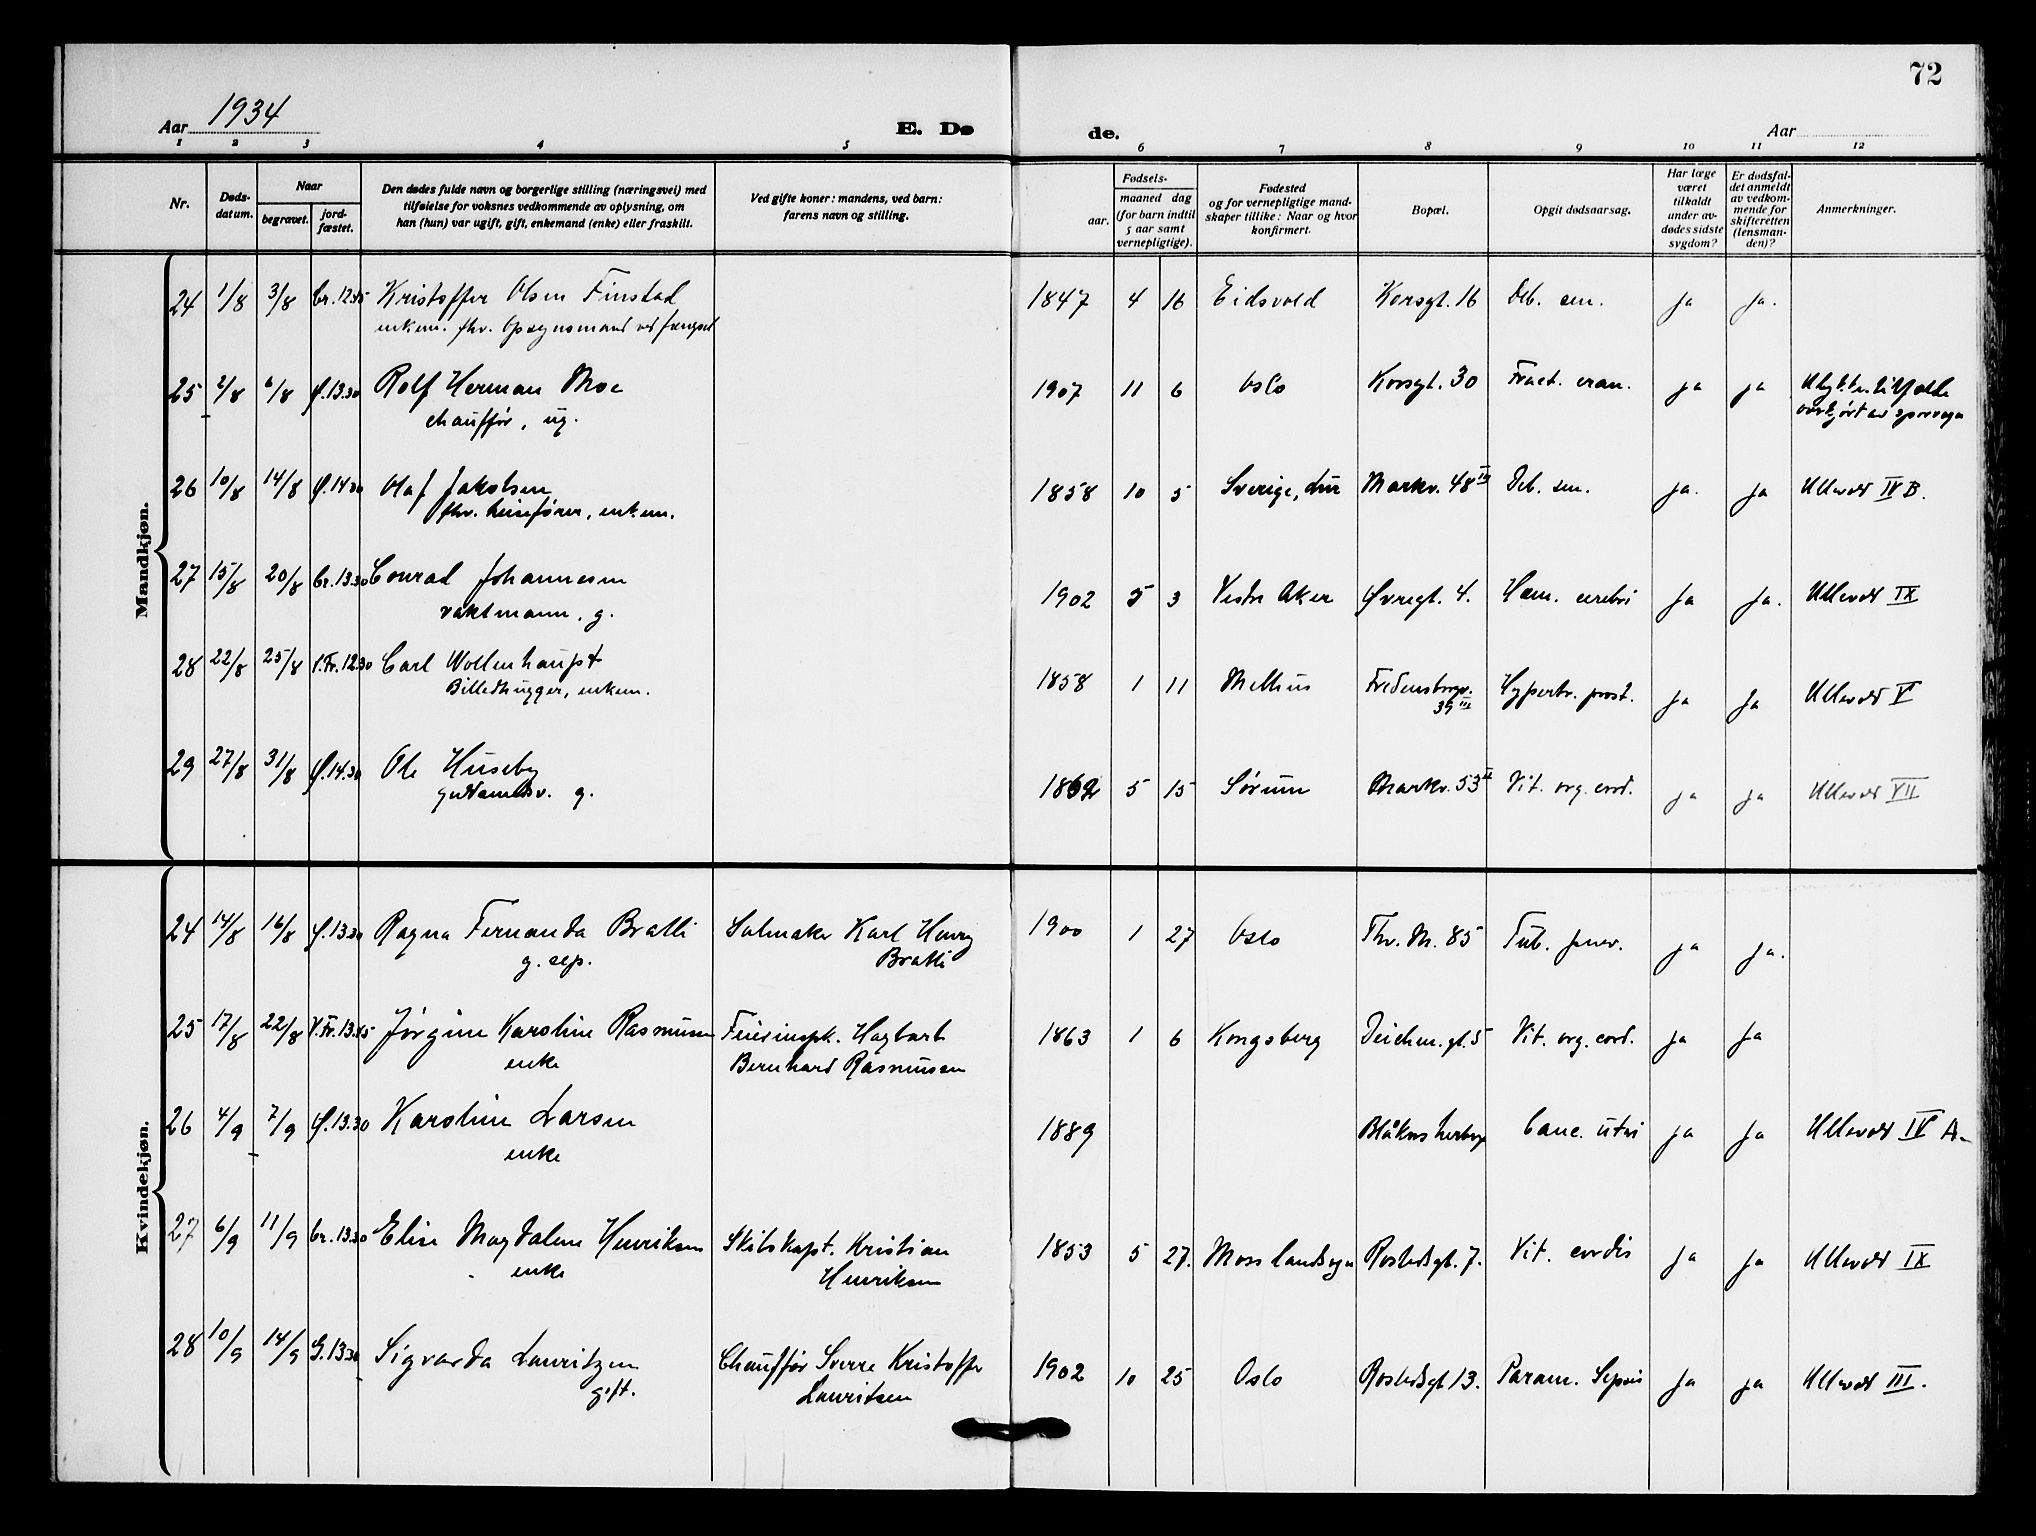 72
Aar 1934
E. Dø
de.
Aar
1 2 3 4 5 6 7 8 9 10 11 12
Nr.
Døds-
datum.
Naar
begravet.
jord-
fæstet.
Den dødes fulde navn og borgerlige stilling (næringsvei) med
tilføielse for voksnes vedkommende av oplysning, om
han (hun) var ugift, gift, enkemand (enke) eller fraskilt.
Ved gifte koner: mandens, ved barn:
farens navn og stilling.
Fødsels-
aar.
maaned dag
(for barn indtil
5 aar samt
vernepligtige).
Fødested
og for vernepligtige mand-
skaper tillike: Naar og hvor
konfirmert.
Bopæl.
Opgit dødsaarsag.
Har læge
været
tilkaldt
under av-
dødes sidste
sygdom?
Er dødsfal-
det anmeldt
av vedkom-
mende for
skifteretten
(lensman-
den)?
Anmerkninger.
Mandkjøn.
24 1/8 3/8 Cr. 12.45 Kristoffer Olsen Finstad 1847 4 16 Eidsvold Korsgt. 16 Deb. sen. ja ja.
enkem. fhv. Opsynsmand ved fængsel
25 2/8 6/8 Ø. 13.30 Rolf Herman Moe 1907 11 6 Oslo Korsgt. 30 Fract. cran. ja ja
chauffør, ug.
overkjørt av sporvogn
26 10/8 14/8 Ø. 14.00 Olaf Jakobsen 1858 10 5 Sverige, Markv. 48 III Deb. sen. ja. ja Ullevål IV B.
fhv. heisefører, enkem.
27 15/8 20/8 Cr. 13.30 Conrad Johannesen 1902 5 3 Vestre Aker Øvregt. 4. Hæm. cerebri ja ja. Ullevål IX
vaktmann, g.
28 22/8 25/8 V. Fr. 12.30 Carl Wollenhaupt 1858 1 11 Melhus Fredensborgv. Hypertr. prost. ja ja Ullevål V
39 III
Billedhugger, enkem.
29 27/8 31/8 Ø. 14.30 Ole Huseby 1862 5 15 Sørum Markv. 53 II Vit. org. cord. ja ja Ullevål VII
g.
Kvindekjøn.
24 14/8 16/8 Ø. 13.30 Ragna Fernanda Bratli Salmaker Karl Henry 1900 1 27 Oslo Thv. M. 85 Tub. pulm. ja ja.
g. sep. Bratli
25 17/8 22/8 V. Fr. 13.15 Jørgine Karoline Rasmusen Feierinspk. Hagbart 1863 1 6 Kongsberg Deichm. gt. 5 Vit. org. cord. ja ja
enke Bernhard Rasmussen
26 4/9 7/9 Ø. 13.30 Karoline Larsen 1889 Blåkors herberge Canc. uteri ja ja Ullevål IV A.
enke
27 6/9 11/9 Cr. 13.30 Elise Magdalene Henriksen Skibskapt. Kristian 1853 5 27. Moss landsogn Rostedsgt. 7. Vit. cordis ja ja Ullevål IX
enke Henriksen
28 10/9 14/9 G. 13.30 Sigvarda Lauritzen Chauffør Sverre Kristoffer 1902 10 25 Oslo Rostedsgt. 13. Param. Sepsis ja ja Ullevål III.
gift. Lauritsen